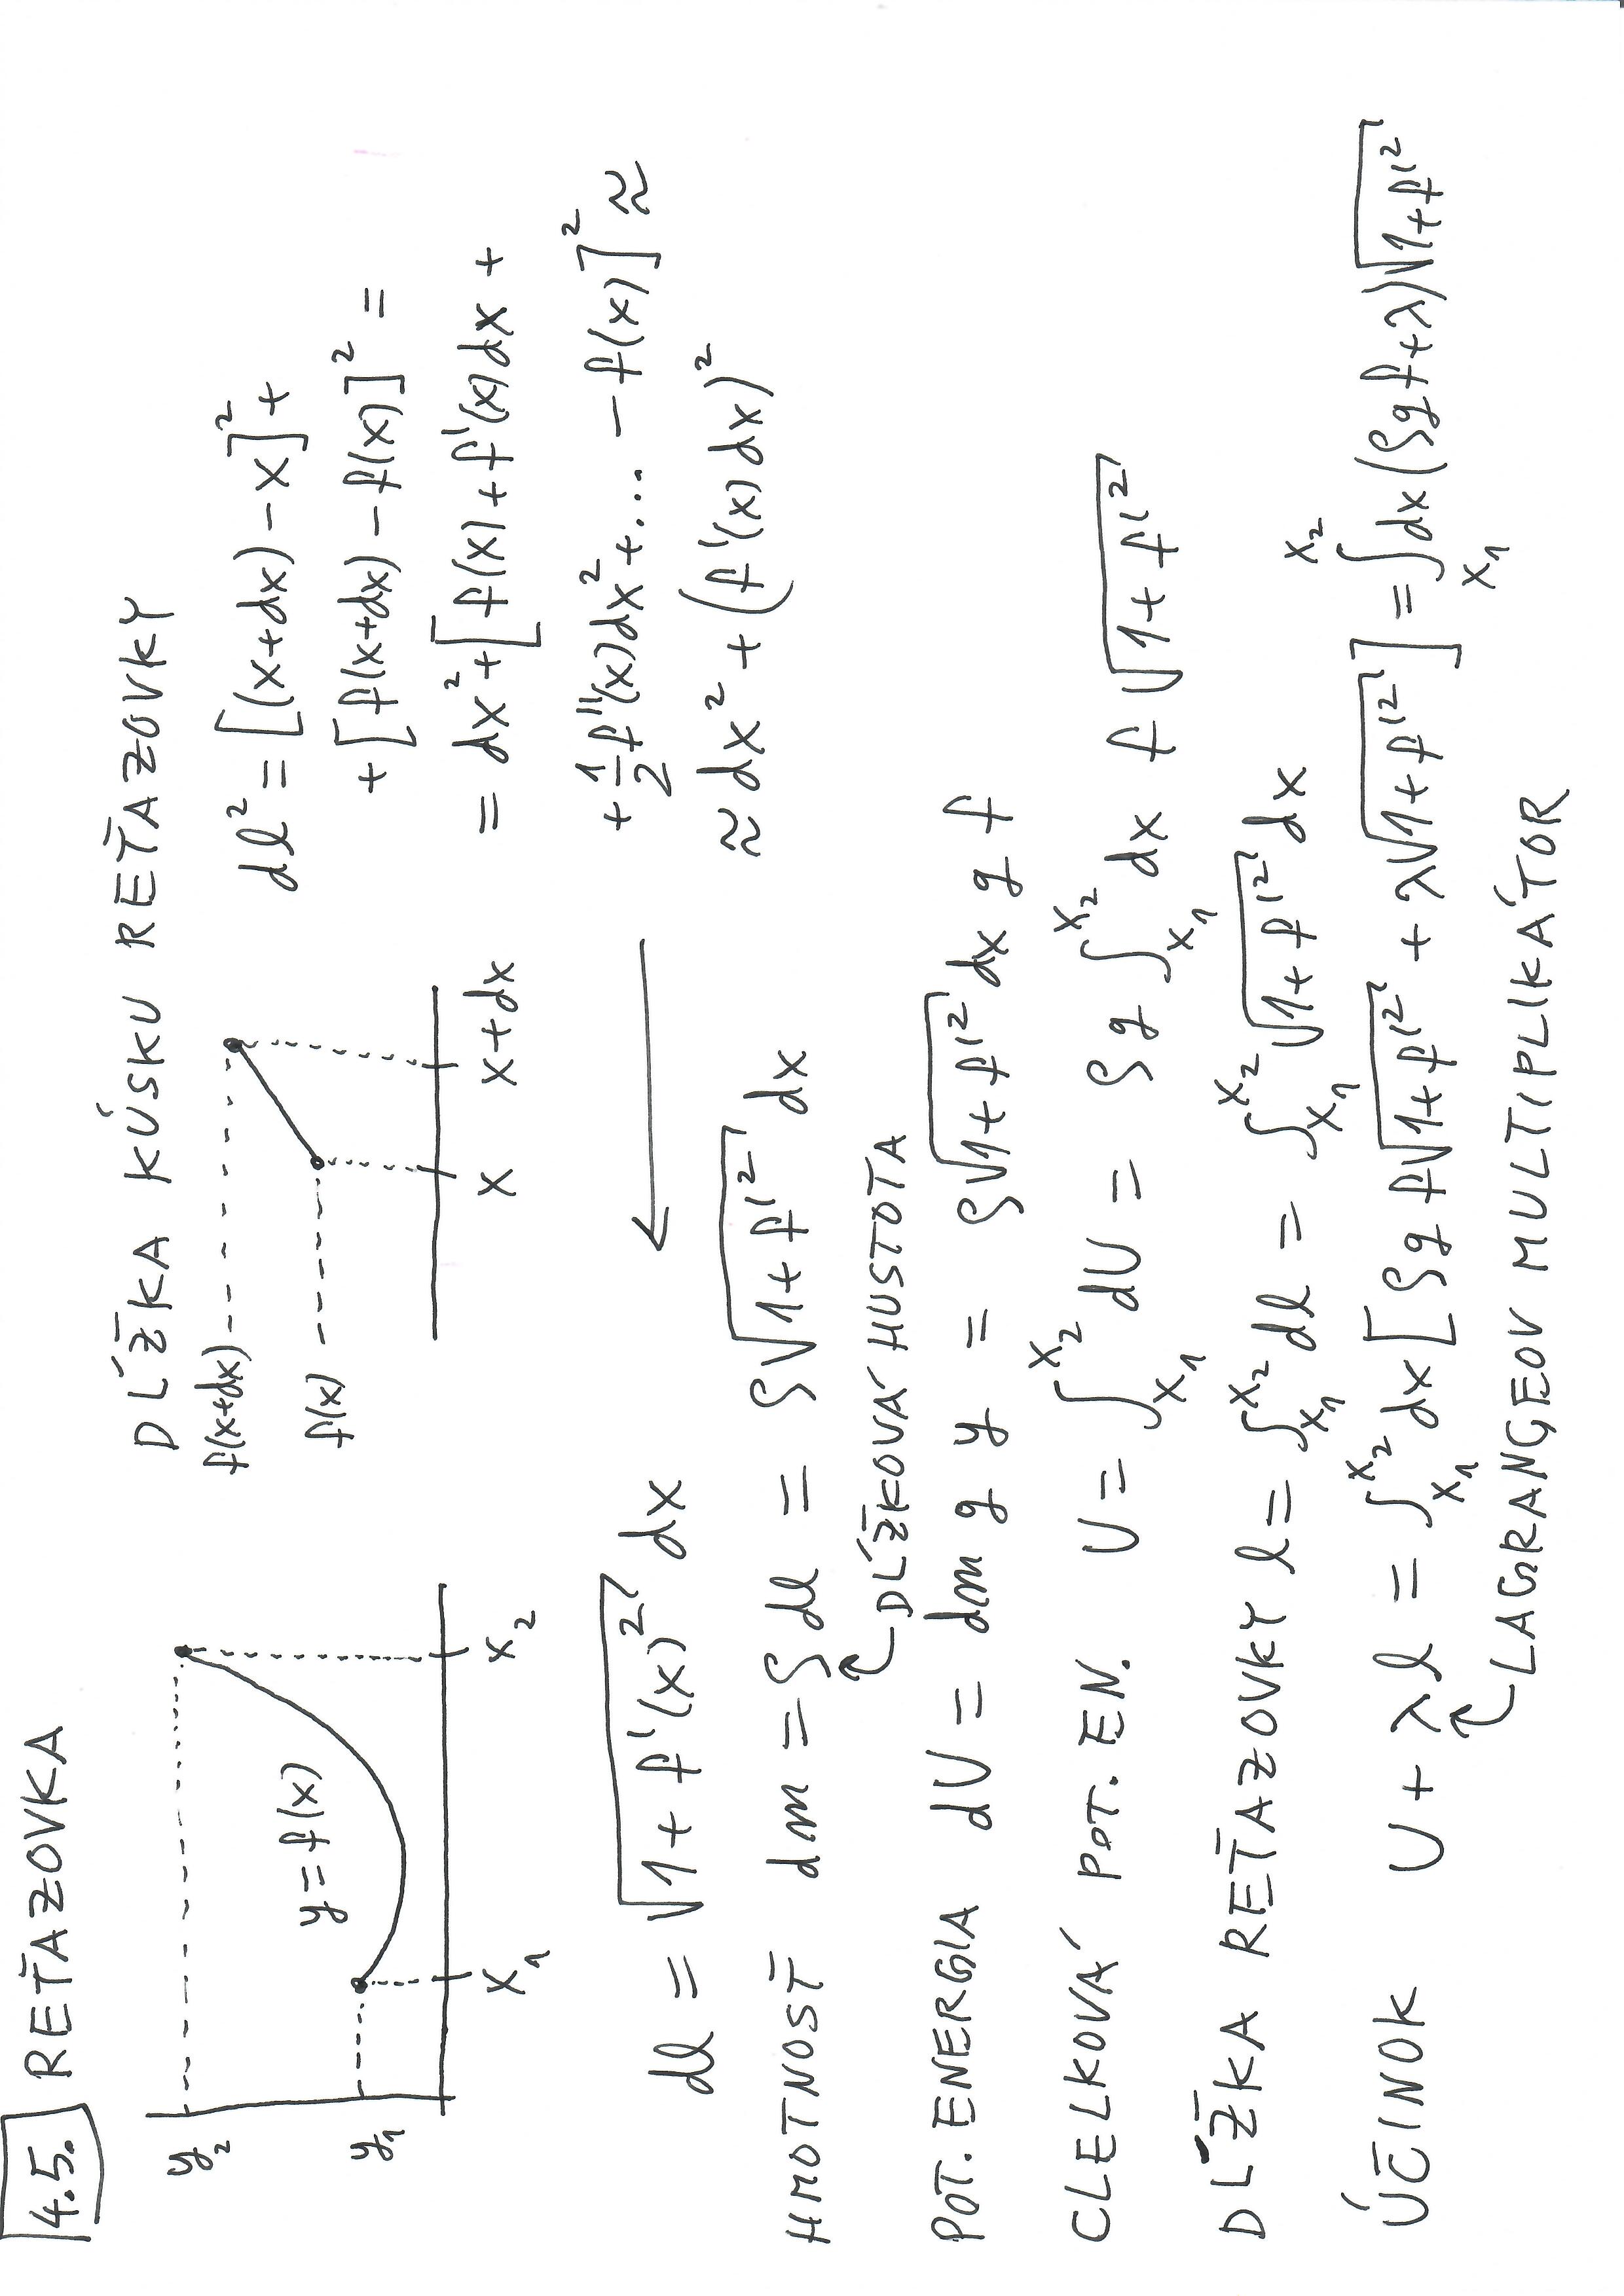 4.5. REŤAZOVKA
y₂
y₁
y = f(x)
x₁ x₂
DĹŽKA KÚSKU REŤAZOVKY
f(x+dx)
f(x)
x x+dx
dl² = [(x+dx) - x]² +
+ [f(x+dx) - f(x)]² =
= dx² + [f(x) + f'(x)dx +
+ 1/2 f''(x)dx² + ... - f(x)]² ≈
≈ dx² + (f'(x)dx)²
dl = √(1 + f'(x)²) dx ←
HMOTNOSŤ dm = ρ dl = ρ√(1+f'²) dx
DĹŽKOVÁ HUSTOTA
POT. ENERGIA dU = dm g y = ρ√(1+f'²) dx g f
CLELKOVÁ POT. EN. U = ∫_{x₁}^{x₂} dU = ρ g ∫_{x₁}^{x₂} dx f √(1+f'²)
DĹŽKA REŤAZOVKY l = ∫_{x₁}^{x₂} dl = ∫_{x₁}^{x₂} √(1+f'²) dx
ÚČINOK U + λl = ∫_{x₁}^{x₂} dx [ρ g f√(1+f'²) + λ√(1+f'²)] = ∫_{x₁}^{x₂} dx (ρ g f + λ)√(1+f'²)
LAGRANGEOV MULTIPLIKÁTOR